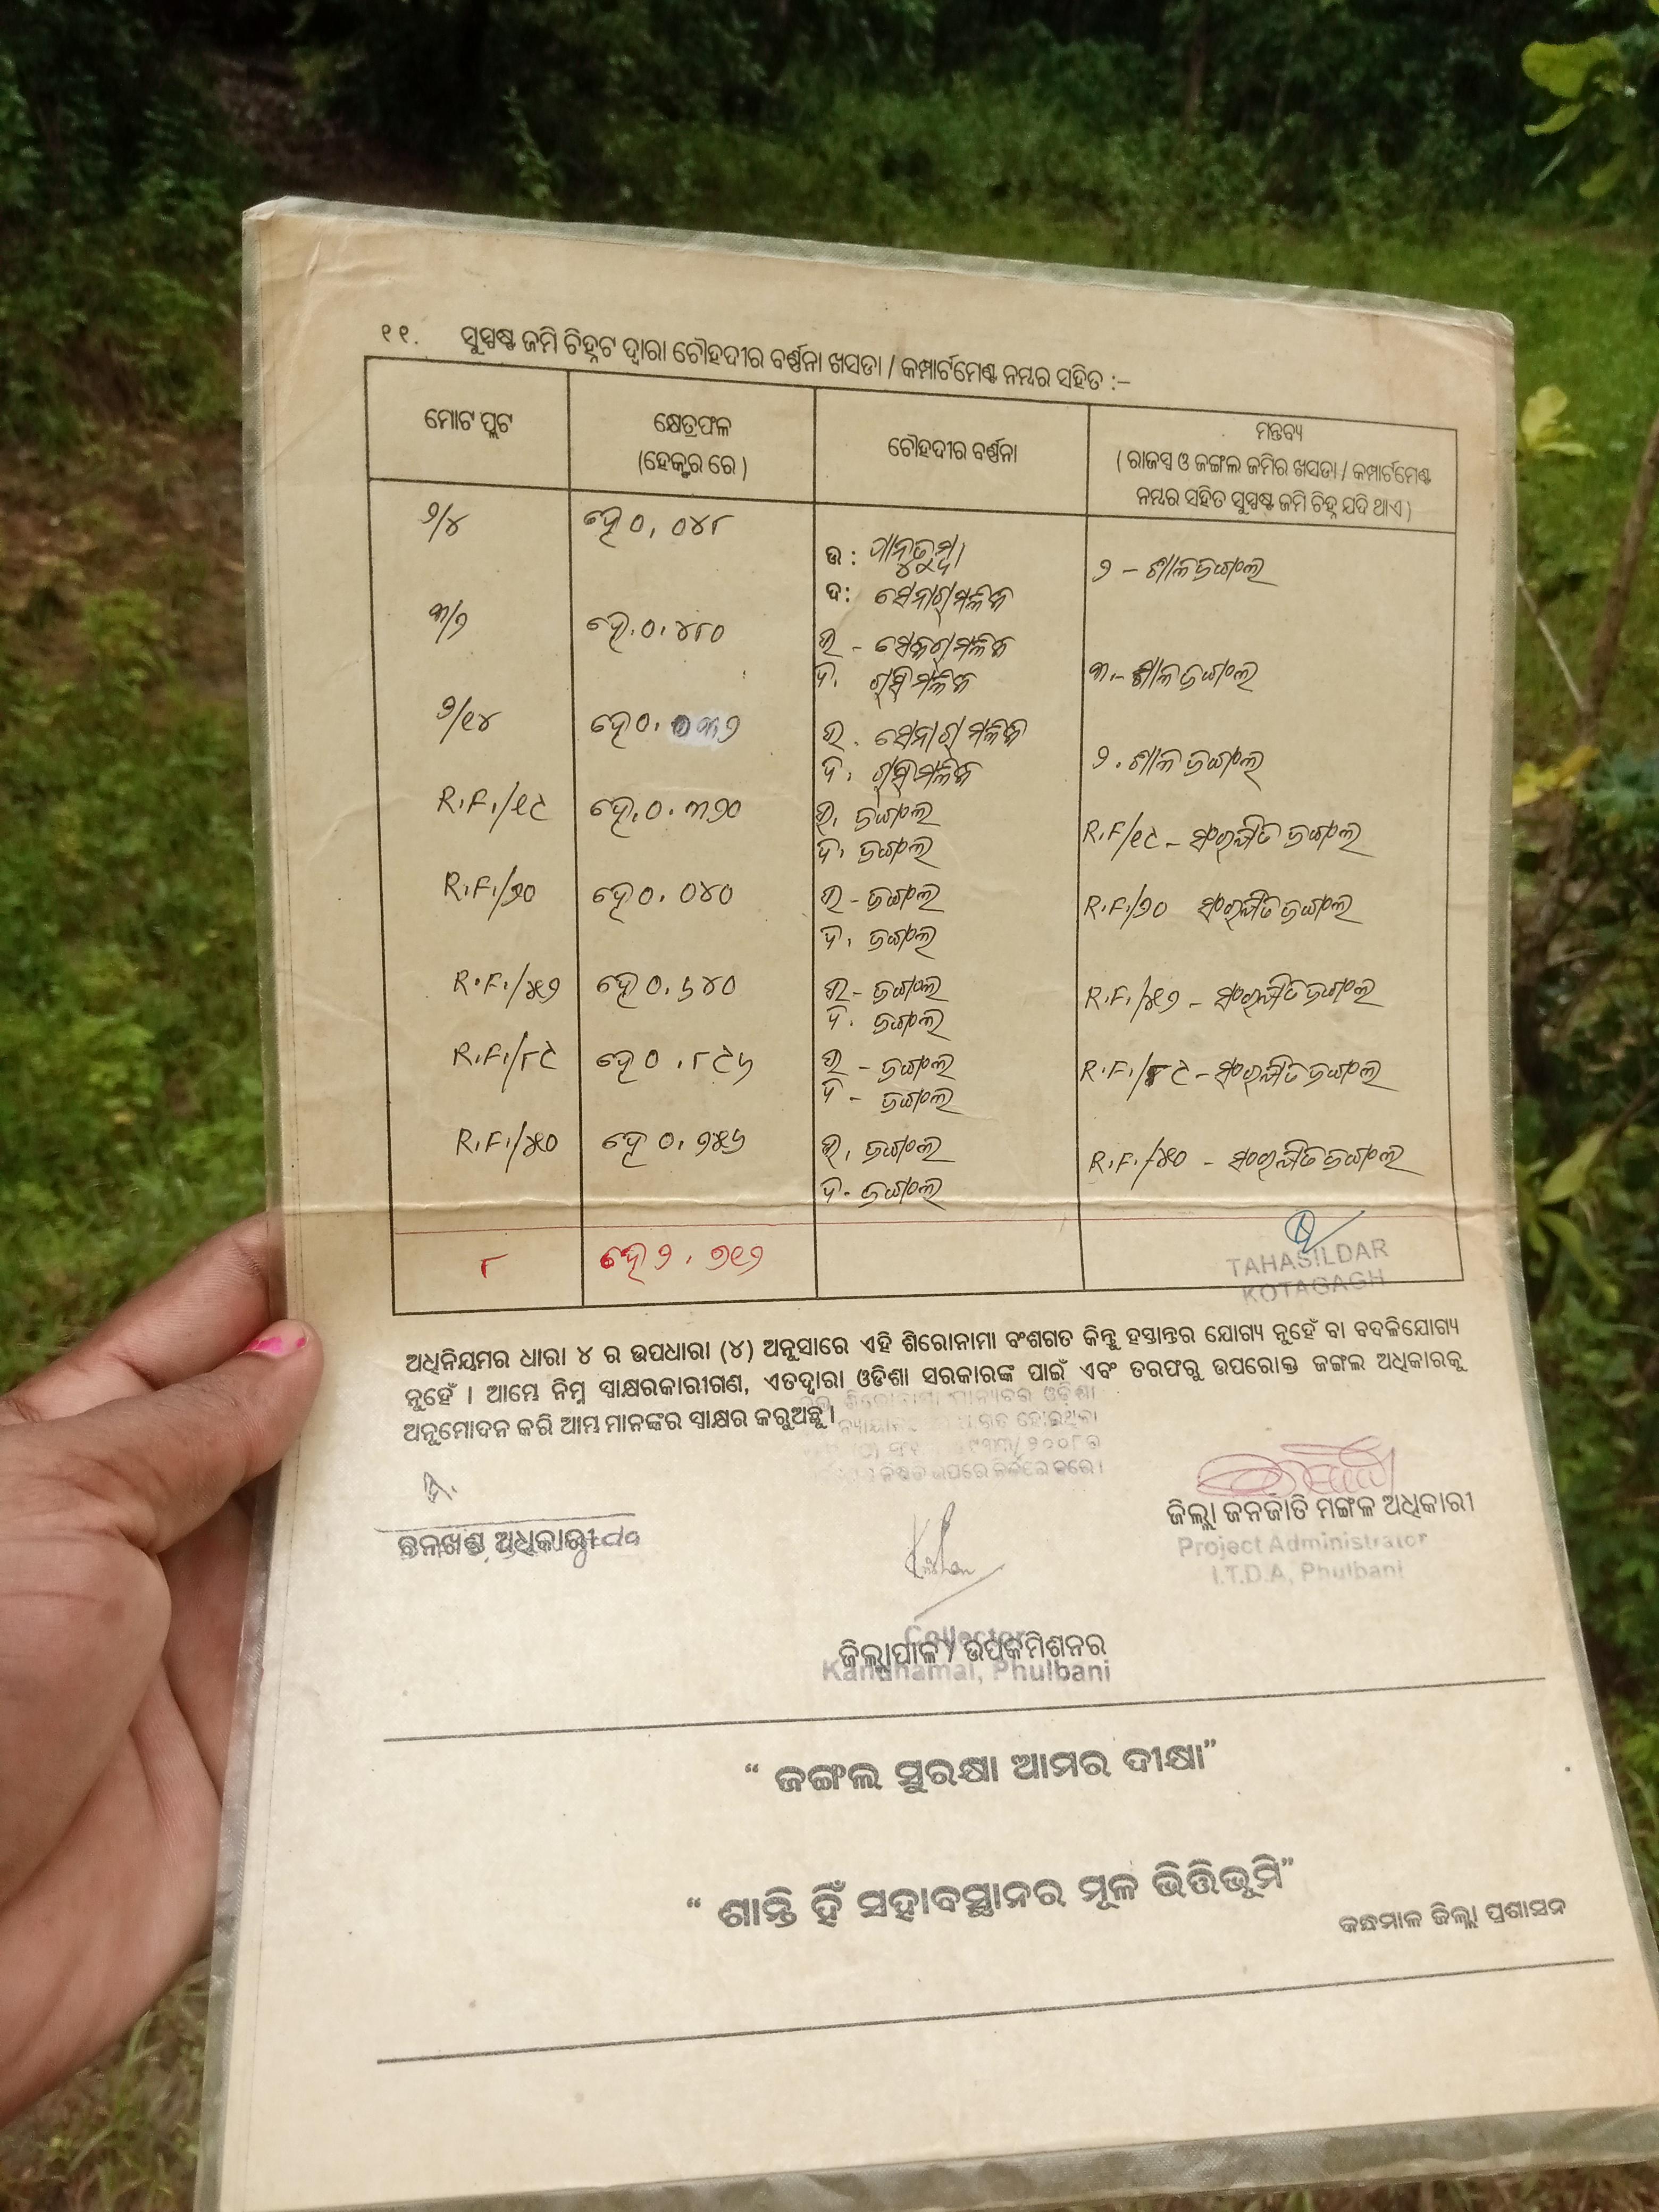 ୧୧. ସୁସ୍ପଷ୍ଟ ଜମି ଚିହ୍ନଟ ଦ୍ୱାରା ଚୌହଦୀର ବର୍ଣ୍ଣନା ଖସଡା / କମ୍ପାର୍ଟମେଣ୍ଟ ନମ୍ବର ସହିତ :–
ମୋଟ ପ୍ଲଟ
କ୍ଷେତ୍ରଫଳ
(ହେକ୍ଟର ରେ )
ଚୌହଦୀର ବର୍ଣ୍ଣନା
ମନ୍ତବ୍ୟ
( ରାଜସ୍ୱ ଓ ଜଙ୍ଗଲ ଜମିର ଖସଡା / କମ୍ପାର୍ଟମେଣ୍ଟ
ନମ୍ବର ସହିତ ସୁସ୍ପଷ୍ଟ ଜମି ଚିହ୍ନ ଯଦି ଥାଏ )
୨/୪ ହେ ୦.୦୪୮
ଉ :
ଦ: ସେନାଗ୍ ମଳିକ
୨ – ଶାଳଜଙ୍ଗଲ
୩/୨ ହେ.୦.୪୮୦
ଉ -
ଦ.
୩.- ଶାଳଜଙ୍ଗଲ
୨/୧୪ ହେ ୦.୦୩୨
ଉ. ସେନାଗ୍ ମଳିକ
ଦ.
୨. ଶାଳଜଙ୍ଗଲ
R.F./୧୯ ହେ.୦.୩୨୦
ଉ. ଜଙ୍ଗଲ
ଦ. ଜଙ୍ଗଲ
R.F/୧୯ - ସଂରକ୍ଷିତ ଜଙ୍ଗଲ
R.F./୨୦ ହେ ୦.୦୪୦
ଉ - ଜଙ୍ଗଲ
ଦ. ଜଙ୍ଗଲ
R.F./୨୦ ସଂରକ୍ଷିତ ଜଙ୍ଗଲ
R.F./୫୨ ହେ ୦.୬୪୦
ଉ - ଜଙ୍ଗଲ
ଦ. ଜଙ୍ଗଲ
R.F./୫୨ - ସଂରକ୍ଷିତ ଜଙ୍ଗଲ
R.F./୮୯ ହେ ୦.୮୯୬
ଉ - ଜଙ୍ଗଲ
ଦ - ଜଙ୍ଗଲ
R.F./୮୯ - ସଂରକ୍ଷିତ ଜଙ୍ଗଲ
R.F./୫୦ ହେ ୦.୨୫୬
ଉ. ଜଙ୍ଗଲ
ଦ. ଜଙ୍ଗଲ
R.F./୫୦ - ସଂରକ୍ଷିତ ଜଙ୍ଗଲ
୮ ହେ ୨.୭୧୨
TAHASILDAR
KOTAGAGH
ଅଧିନିୟମର ଧାରା ୪ ର ଉପଧାରା (୪) ଅନୁସାରେ ଏହି ଶିରୋନାମା ବଂଶଗତ କିନ୍ତୁ ହସ୍ତାନ୍ତର ଯୋଗ୍ୟ ନୁହେଁ ବା ବଦଳିଯୋଗ୍ୟ
ନୁହେଁ । ଆମ୍ଭେ ନିମ୍ନ ସ୍ୱାକ୍ଷରକାରୀଗଣ, ଏତଦ୍ୱାରା ଓଡିଶା ସରକାରଙ୍କ ପାଇଁ ଏବଂ ତରଫରୁ ଉପରୋକ୍ତ ଜଙ୍ଗଲ ଅଧିକାରକୁ
ଅନୁମୋଦନ କରି ଆମ୍ଭ ମାନଙ୍କର ସ୍ୱାକ୍ଷର କରୁଅଛୁ ।
ଉପରେ ନିର୍ଭର କରେ ।
ବନଖଣ୍ଡ ଅଧିକାରୀ
ଜିଲ୍ଲା ଜନଜାତି ମଙ୍ଗଳ ଅଧିକାରୀ
Project Administrator
I.T.D.A, Phulbani
Collector
ଜିଲ୍ଲାପାଳ / ଉପକମିଶନର
Kandhamal, Phulbani
“ ଜଙ୍ଗଲ ସୁରକ୍ଷା ଆମର ଦୀକ୍ଷା”
“ ଶାନ୍ତି ହିଁ ସହାବସ୍ଥାନର ମୂଳ ଭିତ୍ତିଭୂମି”
କନ୍ଧମାଳ ଜିଲ୍ଲା ପ୍ରଶାସନ